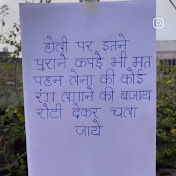 होली पर इतने
पुराने कपड़े भी मत
पहन लेना की कोई
रंग लगाने की बजाय
रोटी देकर चला
जाये